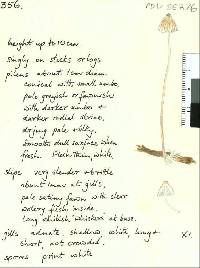 356.
PDD 55276
height up to 10cm
Singly on sticks or logs
pileus about 1cm diam.
conical with small umbo,
pale greyish or fawnish
with darker umbo +
darker radial striae,
drying pale + silky,
smooth dull surface when
fresh. Flesh thin, white.
stipe very slender + brittle
about 1mm at gills,
pale satiny fawn, with clear
watery flesh inside.
long whitish 'whiskers' at base.
gills adnate shallow white, long +
short, not crowded.
spore print white
x1.